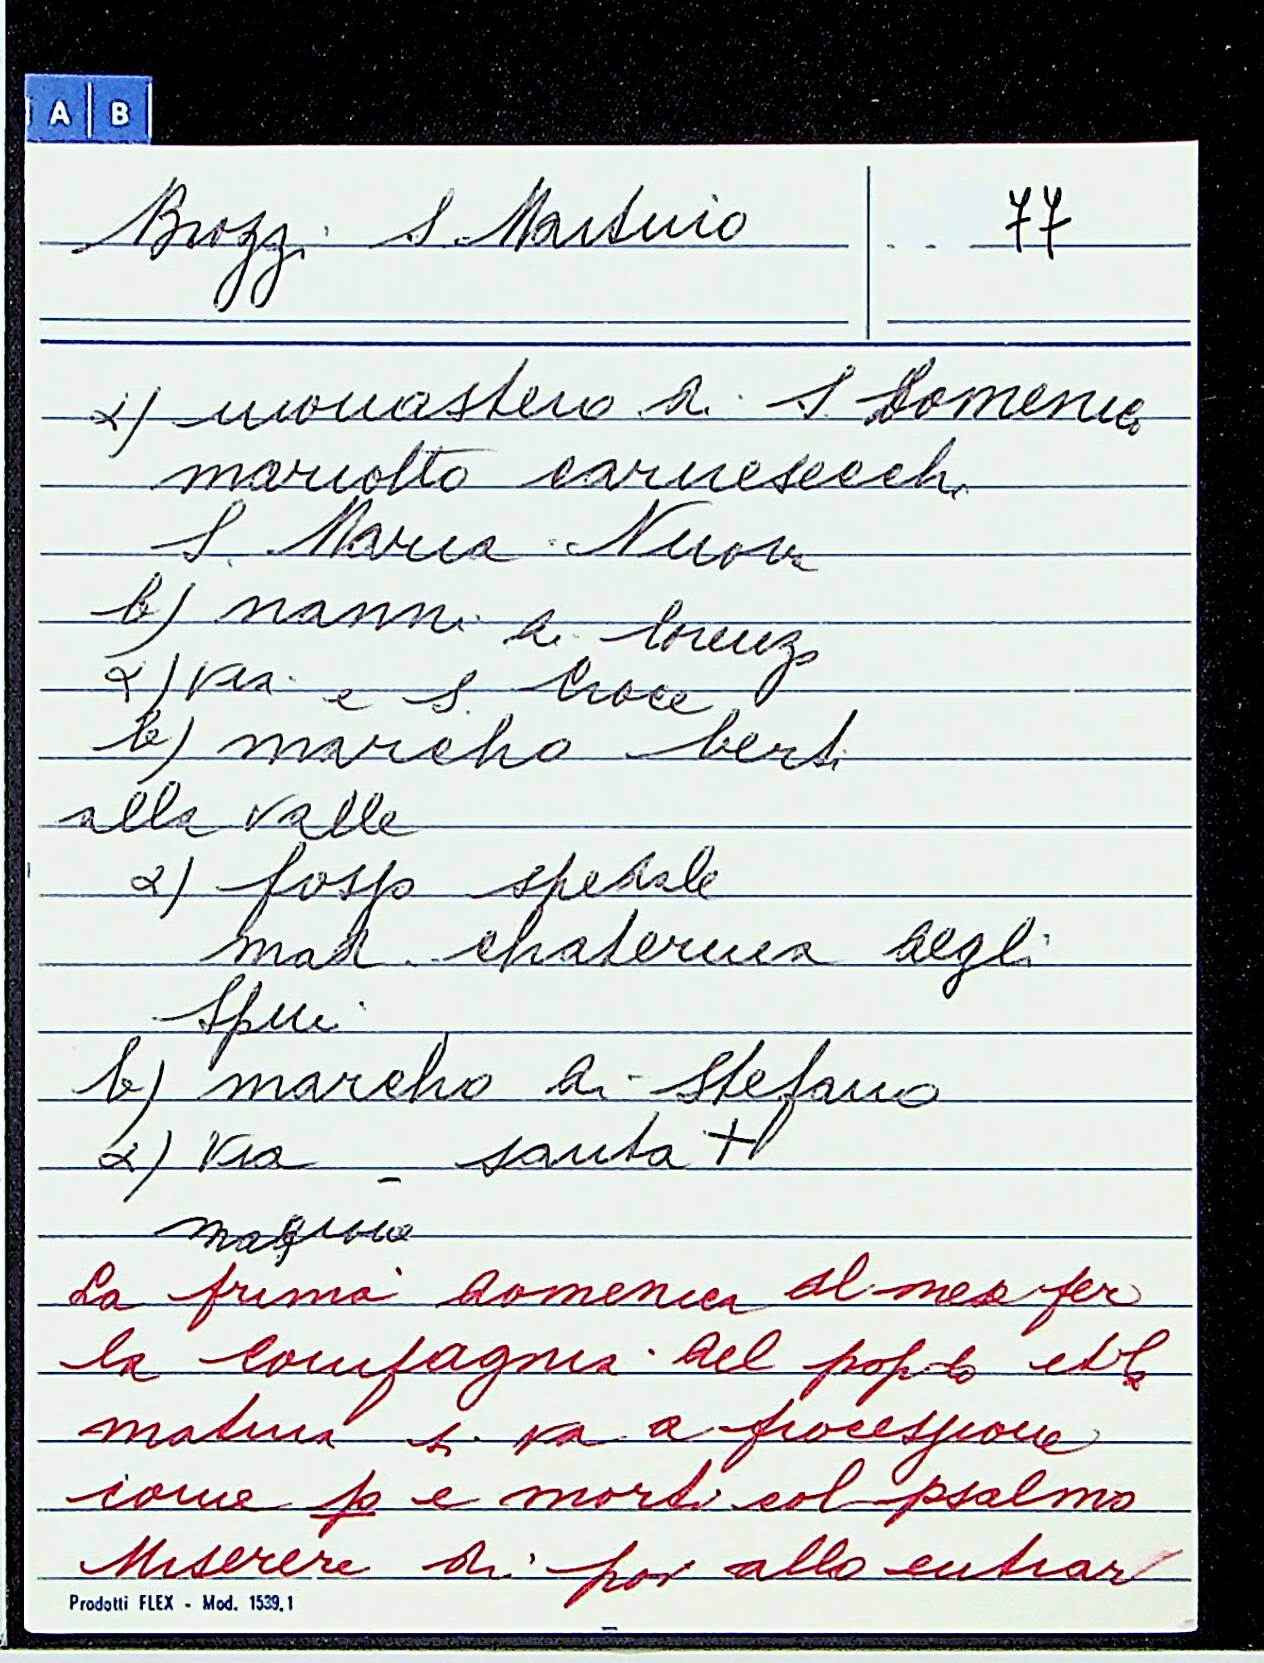 A B
Brozzi S. Martino
77
a) monastero di S Domenico
mariotto carnesecchi
S. Maria Nuova
b) nanni di lorenzo
a) via e S. Croce
b) marcho berti
alla valle
a) fosso spedale
mad. chaterina degli
Spini
b) marcho di Stefano
a) via - santa +
magione
La prima domenica del mese per
la compagnia del popolo et la
matina si va a processione
come p e morti col psalmo
Miserere di poi allo entrar
Prodotti FLEX - Mod. 1539.1